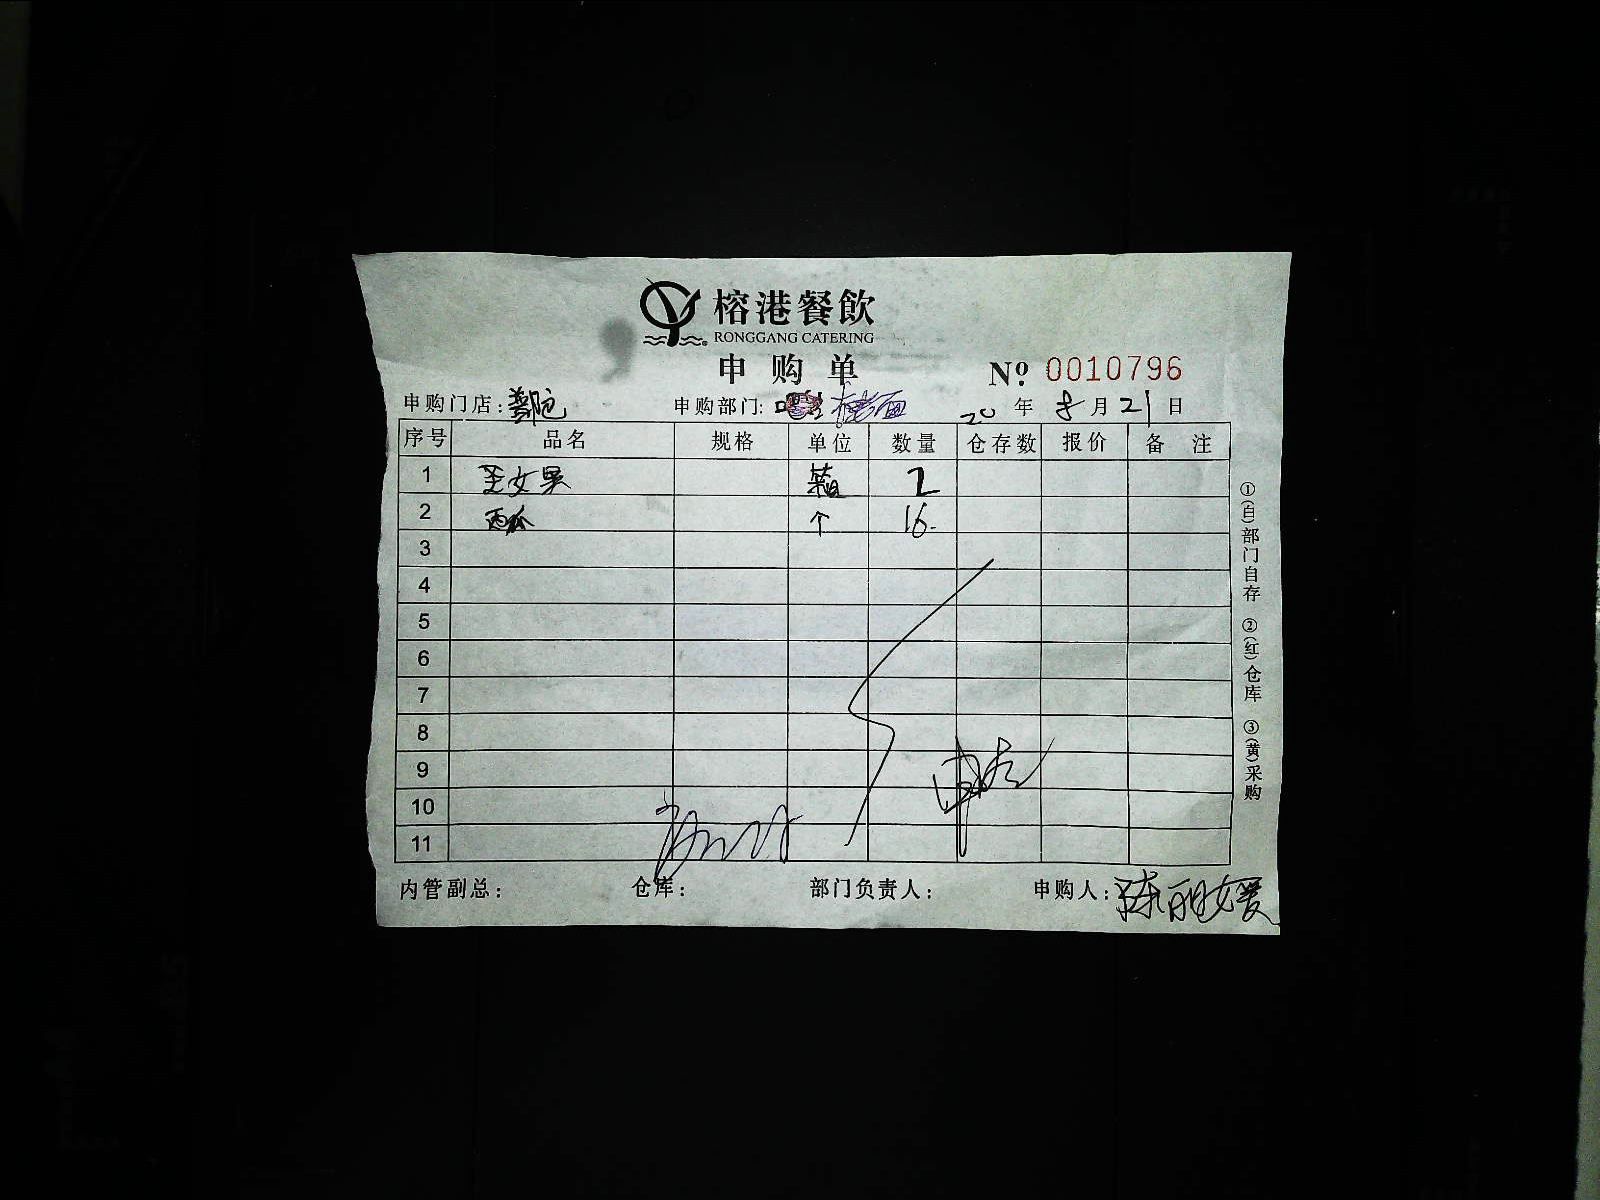 榕港餐飲
RONGGANG CATERING
申购单
№ 0010796
申购门店: 申购部门: 20年8月21日
序号 品名 规格 单位 数量 仓存数 报价 备注
1 圣女果 箱 2
2 西瓜 个 16.
3
4
5
6
7
8
9
10
11
内管副总: 仓库: 部门负责人: 申购人:陈丽媛
①(白)部门自存 ②(红)仓库 ③(黄)采购